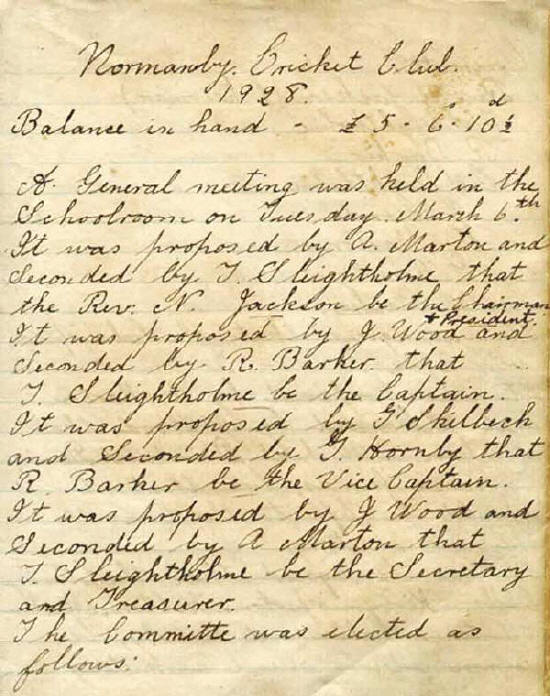 Normanby. Cricket Club.
1928.
Balance in hand - £5 - 6 - 10½
A General meeting was held in the
Schoolroom on Tuesday. March 6th.
It was proposed by A. Marton and
Seconded by T. Sleightholme that
the Rev. N. Jackson be the Chairman
+ President.
It was proposed by J. Wood and
Seconded by R. Barker. that
T. Sleightholme be the Captain.
It was proposed by G Skilbeck
and Seconded by T. Hornby that
R. Barker be the Vice Captain.
It was proposed by J Wood and
Seconded by A Marton that
T. Sleightholme be the Secretary
and Treasurer.
The Committe was elected as
follows: